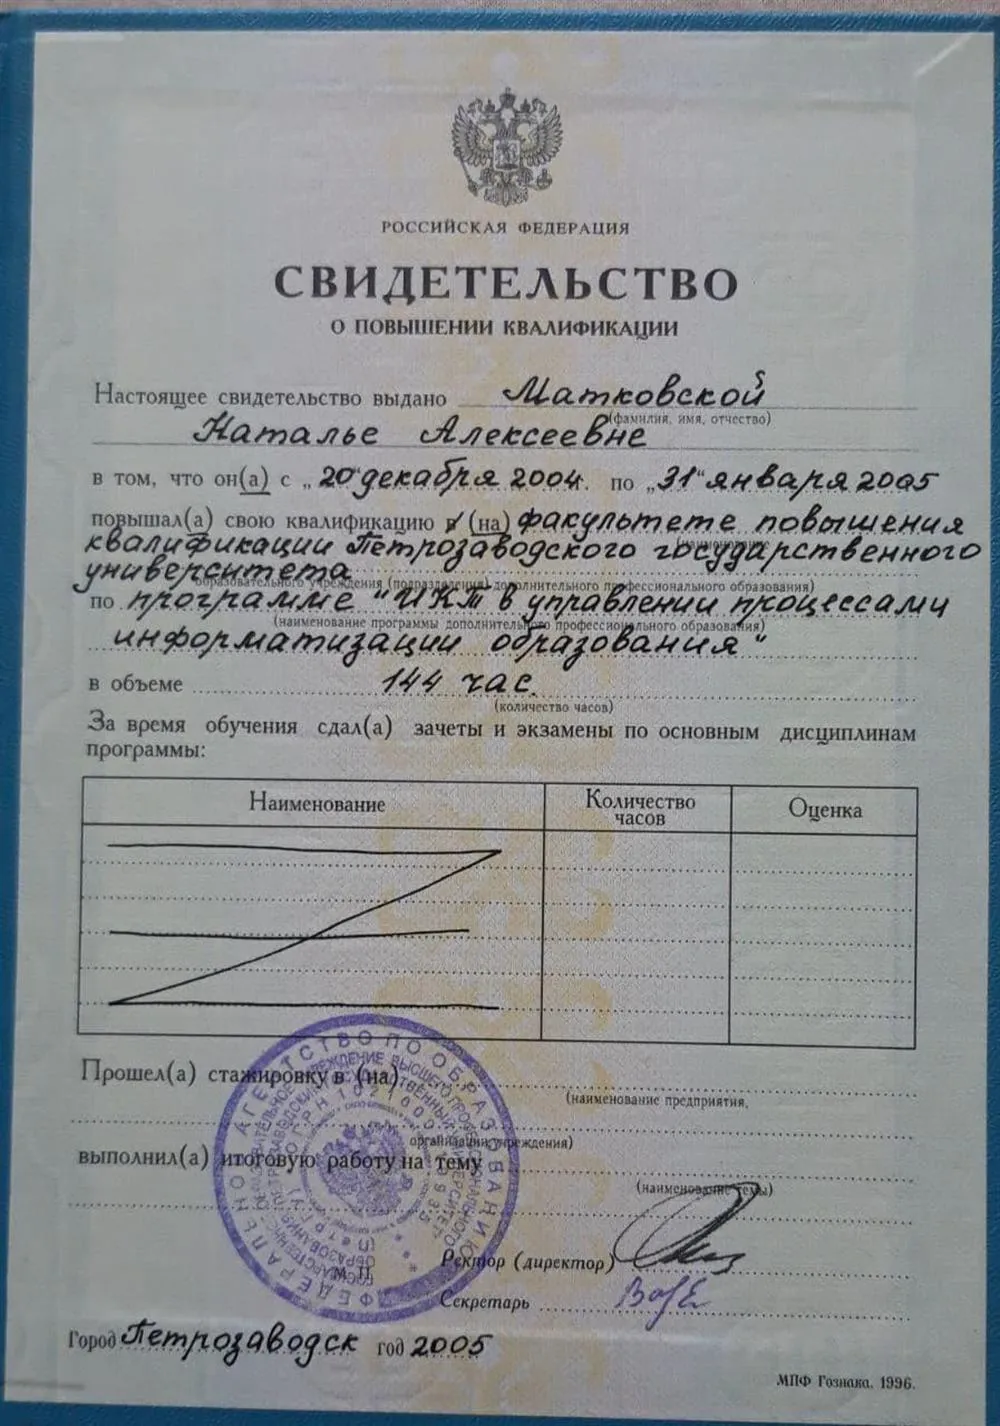 РОССИЙСКАЯ ФЕДЕРАЦИЯ
СВИДЕТЕЛЬСТВО
О ПОВЫШЕНИИ КВАЛИФИКАЦИИ
Настоящее свидетельство выдано Матковской
(фамилия, имя, отчество)
Наталье Алексеевне
в том, что он(а) с „20“ декабря 2004г. по „31“ января 2005
повышал(а) свою квалификацию в (на) факультете повышения
(наименование
квалификации Петрозаводского государственного
университета
образовательного учреждения (подразделения) дополнительного профессионального образования)
по программе "ИКТ в управлении процессами
(наименование программы дополнительного профессионального образования)
информатизации образования"
в объеме 144 час.
(количество часов)
За время обучения сдал(а) зачеты и экзамены по основным дисциплинам
программы:
Наименование Количество часов Оценка
Прошел(а) стажировку в (на)
(наименование предприятия,
организации, учреждения)
выполнил(а) итоговую работу на тему
(наименование темы)
ФЕДЕРАЛЬНОЕ АГЕНТСТВО ПО ОБРАЗОВАНИЮ
М П
Ректор (директор)
Секретарь
Город Петрозаводск год 2005
МПФ Гознака. 1996.